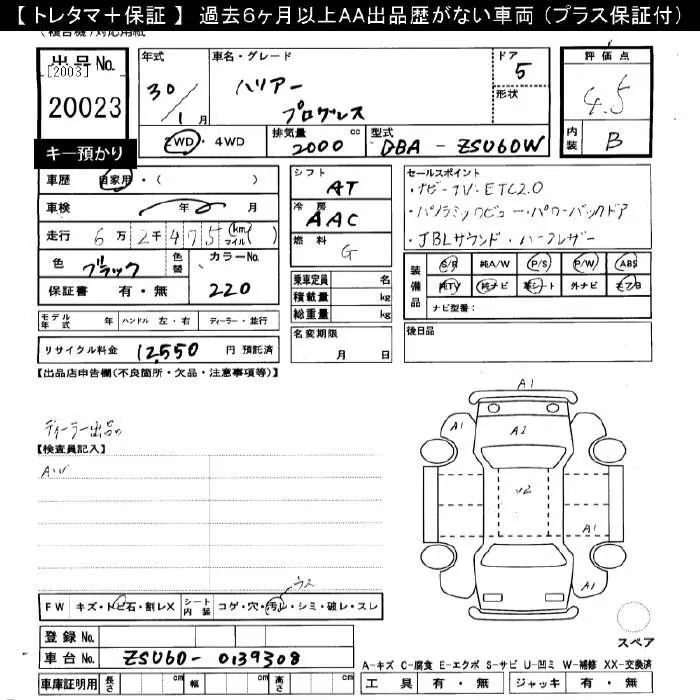 【 トレタマ＋保証 】 過去6ヶ月以上AA出品歴がない車両（プラス保証付）
出品No. [2003] 20023
キー預かり
年式 30/1月
車名・グレード ハリアー プログレス
ドア 5
形状
評価点 4.5
内装 B
2WD・4WD
排気量 2000 cc
型式 DBA - ZSU60W
車歴 自家用・( )
車検 年 月
走行 6万2千475(km マイル)
色 ブラック 色替 カラーNo. 220
保証書 有・無
シフト AT
冷房 AAC
燃料 G
乗車定員 名
積載量 kg
総重量 kg
セールスポイント
・ナビ・TV・ETC2.0
・パノラミックビュー・パワーバックドア
・JBLサウンド・ハーフレザー
装備品 S/R 純A/W P/S P/W ABS
純TV 純ナビ 革シート 外ナビ エアB
ナビ型番：
モデル年式 年 ハンドル 左・右 ディーラー・並行
名変期限 月 日
後日品
リサイクル料金 12,550 円 預託済
【出品店申告欄(不良箇所・欠品・注意事項等)】
ディーラー出品
【検査員記入】
A・U
A1
A1
A2
U2
A1
A1
スペア
FW キズ・トビ石・割レX シート内装 コゲ・穴・汚レ・シミ・破レ・スレ
ウス
登録No.
車台No. ZSU60- 0139308
車庫証明用 長さ cm 幅 cm 高さ cm
A-キズ C-腐食 E-エクボ S-サビ U-凹ミ W-補修 XX-交換済
工具 有・無 ジャッキ 有・無